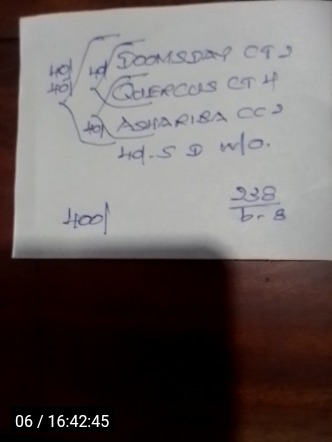 40/ 40/ DOOMSDAY CT 2
40/ QUERCUS CT 4
40/ ASHARIBA CC 2
40/- S D W/O.
400/
238
6-8
06 / 16:42:45